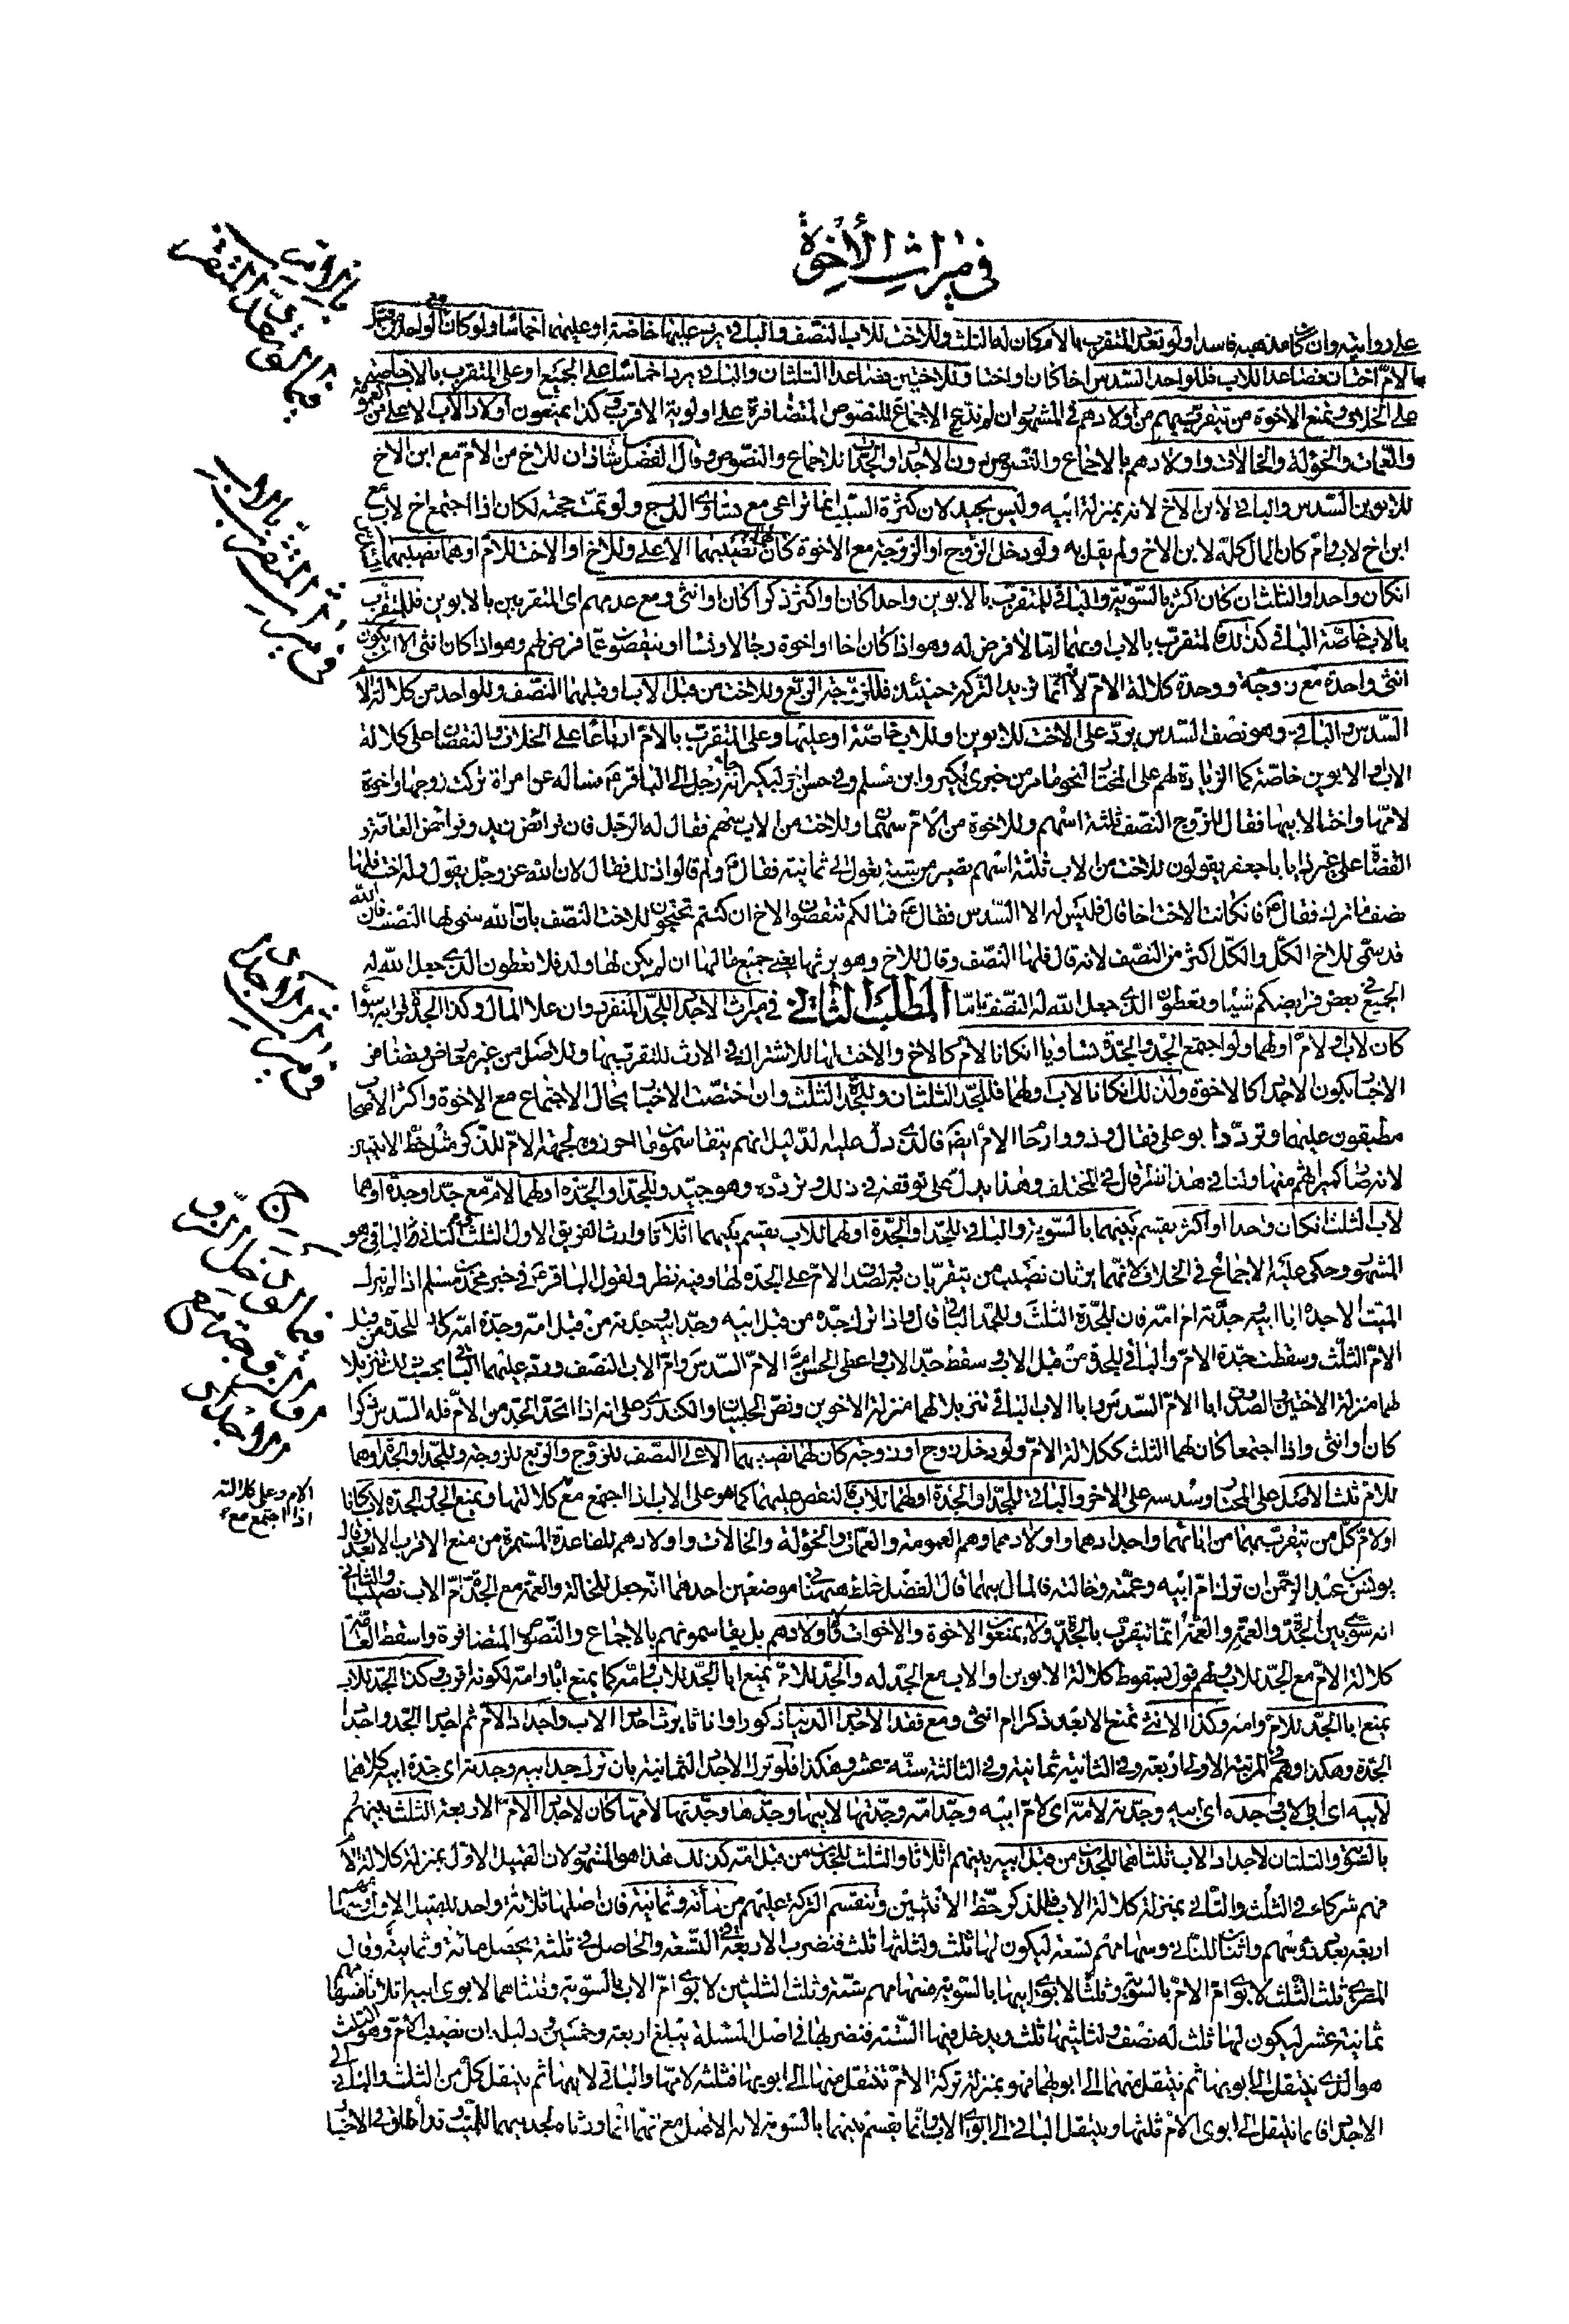 في ميراث الأخوة
على روايته وان كان مذهبه فاسدا ولو تعدد المتقرب بالام كان له الثلث وللاخت للاب النصف والباقي يرد عليها خاصة او عليهما اخماسا ولو كان الواحد من قبل
الام اختان فصاعدا للاب فللواحد السدس اخا كان او اختا وللاختين فصاعدا الثلثان والباقي يرد اخماسا على الجميع او على المتقرب بالاب خاصة
على الخلاف ويمنع الاخوة من يتقرب بهم من اولادهم في المشهور ان لم ندع الاجماع للنصوص المتضافرة على اولوية الاقرب وكذا يمنعون اولاد الاب الاعلى من العمومة
والعمات والخؤلة والخالات واولادهم بالاجماع والنصوص دون الاجداد والجدات للاجماع والنصوص وقال الفضل بن شاذان للاخ من الام مع ابن الاخ
للابوين السدس والباقي لابن الاخ لانه بمنزلة ابيه وليس بجيد لان كثرة السبب انما تراعى مع تساوى الدرج ولو تمت حجته لكان اذا اجتمع اخ لاب مع
ابن اخ لاب وام كان المال كله لابن الاخ ولم يقل به ولو دخل الزوج او الزوجة مع الاخوة كان لهما نصيبهما الاعلى وللاخ او الاخت للام او هما نصيبهما السدس
ان كان واحدا والثلث ان كان اكثر بالسوية والباقي للمتقرب بالابوين واحدا كان او اكثر ذكرا كان او انثى ومع عدمهم اى المتقربين بالابوين فللمتقرب
بالاب خاصة الباقي كذلك
انثى واحدة مع زوجة ووحدة كلالة الام لانه انما تزيد التركة حينئذ فللزوجة الربع وللاخت من قبل الاب او قبلهما النصف وللواحد من كلالة الام
السدس والباقي وهو نصف السدس يرد على الاخت للابوين او للاب خاصة او عليها وعلى المتقرب بالام ارباعا على الخلاف والنقصان على كلالة
الاب او الابوين خاصة كما الزيادة لهم على المختار لنحو ما مر من خبرى بكير وابن مسلم وفي حسن اخر لبكير انه جاء رجل الى الباقر ع فساله عن امراة تركت زوجها واخوة
لامها واختا لابيها فقال للزوج النصف ثلثة اسهم وللاخوة من الام سهمان وللاخت من الاب سهم فقال له الرجل فان فرائض زيد وفرائض العامة و
القضاة على غير ذا يا با جعفر يقولون للاخت من الاب ثلثة اسهم تصير من ستة تعول الى ثمانية فقال ع ولم قالوا ذلك فقال لان الله عز وجل يقول وله اخت فلها
نصف ما ترك فقال ع فان كانت الاخت اخا قال فليس له الا السدس فقال ع فما لكم نقصتم الاخ ان كنتم تحتجون للاخت النصف بان الله سمى لها النصف فان الله
قد سمى للاخ الكل والكل اكثر من النصف لانه قال فلها النصف وقال للاخ وهو يرثها يعني جميع مالها ان لم يكن لها ولد فلا تعطون الذى جعل الله له
الجميع في بعض فرايضكم شيئا وتعطون الذى جعل الله له النصف تاما المطلب الثاني في ميراث الاجداد للجد المنفرد وان علا المال وكذا الجدة لابيه سواء
كان لاب او لام او لهما ولو اجتمع الجد والجدة تساويا ان كانا لام كالاخ والاخت لها للاشتراك في الارث للتقرب بها وللاصل من غير معارض وتضافر
الاخبار بكون الاجداد كالاخوة ولذلك ان كانا لاب او لهما فللجد الثلثان وللجدة الثلث وان اختصت الاخبار بحال الاجتماع مع الاخوة واكثر الاصحاب
مطبقون عليهما وتردد ابو على فقال وذووا رحما الام ايضا فالذى دل عليه الدليل انهم يتقاسمون ما احرزوه لجهة الام للذكر مثل حظ الانثيين
لانه
لاب الثلث ان كان واحدا او اكثر يقسم بينهما بالسوية والباقي للجد او الجدة او لهما للاب يقسم بينهما اثلاثا وارث الفريق الاول الثلث والثاني الباقي هو
المشهور وحكى عليه الاجماع في الخلاف لانهما يرثان نصيب من يتقربان به
الميت الا جده ابا ابيه وجدته ام امه فان للجدة الثلث وللجد الباقي قال واذا ترك جده من قبل ابيه وجد ابيه وجدته من قبل امه وجدة امه كان للجدة من قبل
الام الثلث وسقطت جدة الام والباقي للجد من قبل الاب وسقط جد الاب واعطى الحسن ام الام السدس وام الاب النصف ورد عليهما الباقي بحسب ذلك تنزيلا
لهما منزلة الاختين والصدوق ابا الام السدس وابا الاب الباقي تنزيلا لهما منزلة الاخوين ونص الحلبيان والكندرى على انه اذا اتحد الجد من الام فله السدس ذكرا
كان او انثى واذا اجتمعا كان لهما الثلث ككلالة الام ولو دخل زوج او زوجة كان لهما نصيبهما الاعلى النصف للزوج والربع للزوجة وللجد او الجدة او هما
للام ثلث الاصل على المختار وسدسه على الاخر والباقي للجد او الجدة او لهما للاب فالنقص عليهما كما هو على الاب اذا اجتمع مع كلالتها ويمنع الجد والجدة لاب كانا
او لام كل من يتقرب بهما من ابائهما واجدادهما واولادهما وهم العمومة والعمات والخؤلة والخالات واولادهم للقاعدة المستمرة من منع الاقرب الابعد وقال
يونس بن عبد الرحمن ان ترك ام ابيه وعمته وخالته فالمال بينهما قال الفضل غلط ههنا في موضعين احدهما انه جعل للخالة والعمة مع الجدة ام الاب نصيبا والثاني
انه سوى بين الجدة والعمة والعمة انما تتقرب بالجدة ولا يمنعون الاخوة والاخوات ولا اولادهم بل يقاسمونهم بالاجماع والنصوص المتضافرة واسقط العامة
كلالة الام مع الجد للاب ولهم قول بسقوط كلالة الابوين او الاب مع الجد له والجد للام يمنع ابا الجد للاب وامه كما يمنع اباه وامه لكونه اقرب وكذا الجد للاب
يمنع ابا الجد للام وامه وكذا الانثى تمنع الابعد ذكرا ام انثى ومع فقد الاجداد الدنيا ذكورا واناثا يرث اجداد الاب واجداد الام ثم اجداد الجد واجداد
الجدة وهكذا وهم في المرتبة الاولى اربعة وفي الثانية ثمانية وفي الثالثة ستة عشر وهكذا فلو ترك الاجداد الثمانية بان ترك جد ابيه وجدته اى جدة ابيه كلاهما
لابيه اى ابى
بالسوية والثلثان لاجداد الاب ثلثاهما للجدين من قبل ابيه بينهم اثلاثا والثلث للجدين من قبل امه كذلك هذا هو المشهور لان القبيل الاول بمنزلة كلالة الام
فهم شركاء في الثلث والثاني بمنزلة كلالة الاب فللذكر حظ الانثيين وتنقسم التركة عليهم من مائة وثمانية فان اصلها ثلاثة واحد للقبيل الاول وسهامهم
اربعة بعدد رؤسهم واثنان للثاني وسهامهم تسعة ليكون لها ثلث ولثلثها ثلث فتضرب الاربعة في التسعة والحاصل في ثلثة يحصل مائة وثمانية وقال
المصرى ثلث الثلث لابوى ام الام بالسوية وثلثا لابوى ابيها بالسوية فسهامهم ستة وثلث الثلثين لابوى ام الاب بالسوية وثلثاهما لابوى ابيه اثلاثا فسهامهم
ثمانية عشر ليكون لها ثلث له نصف ولثلثيها ثلث ويدخل فيها الستة فنضربها في اصل المسئلة يبلغ اربعة وخمسين ودليله ان نصيب الام وهو الثلث
هو الذى ينتقل الى ابويها ثم ينتقل منهما الى ابويهما فهو بمنزلة تركة الام تنتقل منها الى ابويها فثلثه لامها والباقي لابيها ثم ينتقل كل من الثلث والباقي الى
الاجداد فانما ينتقل الى ابوى الام ثلثها وينتقل الباقي الى ابوى الاب وانما يقسم بينهما بالسوية لانه الاصل مع انهما انما ورثاه لجديهما للميت وقد اطلق في الاخبار
الام وعلى كلالته
اذا اجتمع مع